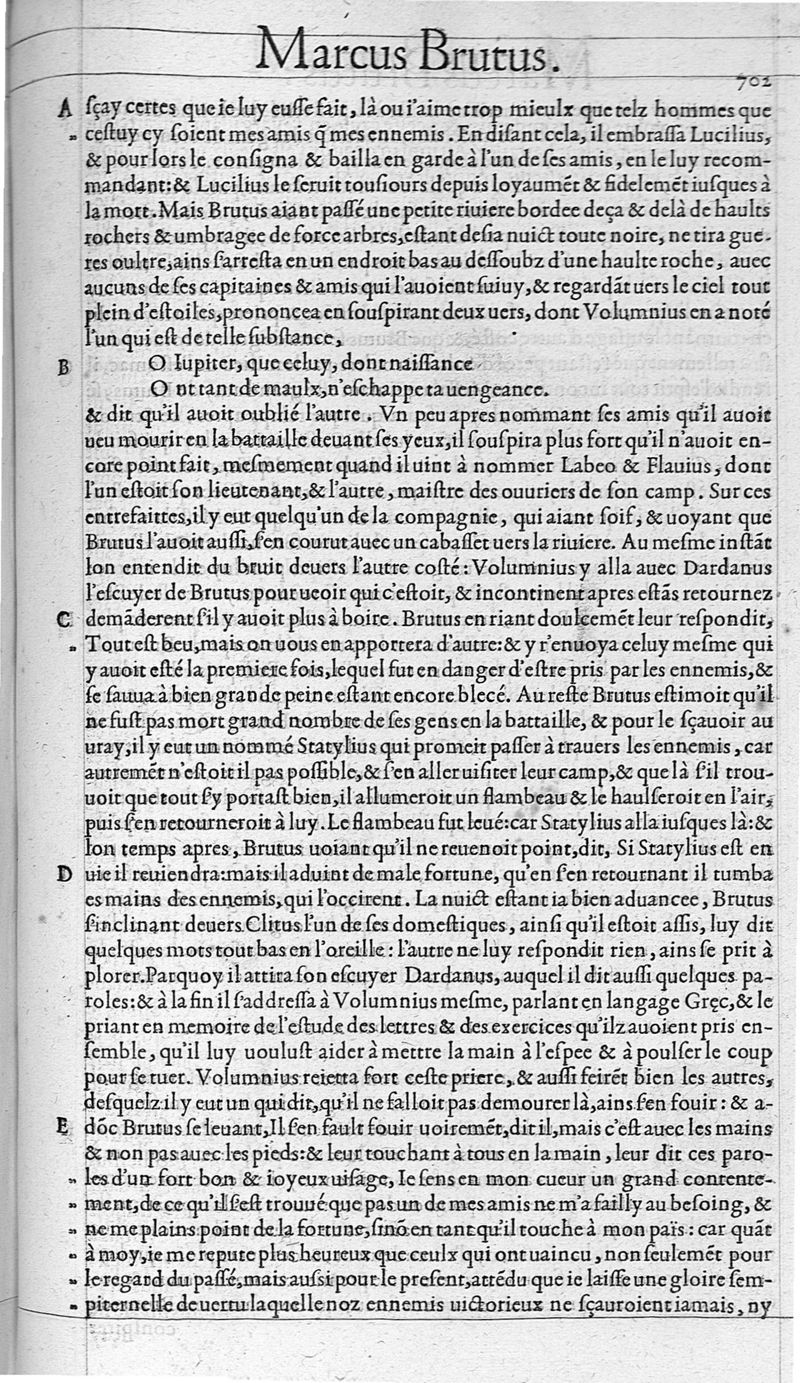 Marcus Brutus.
702
A sçay certes que ie luy eusse fait, là ou i'aime trop mieulx que telz hommes que
" cestuy cy soient mes amis q̃ mes ennemis. En disant cela, il embrassa Lucilius,
& pour lors le consigna & bailla en garde à l'un de ses amis, en le luy recom-
mandant:& Lucilius le seruit tousiours depuis loyaumẽt & fidelemẽt iusques à
la mort. Mais Brutus aiant passé une petite riuiere bordee deça & delà de haults
rochers & umbragee de force arbres, estant desia nuict toute noire, ne tira gue-
res oultre, ains s'arresta en un endroit bas au dessoubz d'une haulte roche, auec
aucuns de ses capitaines & amis qui l'auoient suiuy, & regardãt uers le ciel tout
plein d'estoiles, prononcea en souspirant deux uers, dont Volumnius en a noté
l'un qui est de telle substance,
B O Iupiter, que celuy, dont naissance
O nt tant de maulx, n'eschappe ta uengeance.
& dit qu'il auoit oublié l'autre. Vn peu apres nommant ses amis qu'il auoit
ueu mourir en la battaille deuant ses yeux, il souspira plus fort qu'il n'auoit en-
core point fait, mesmement quand il uint à nommer Labeo & Flauius, dont
l'un estoit son lieutenant, & l'autre, maistre des ouuriers de son camp. Sur ces
entrefaittes, il y eut quelqu'un de la compagnie, qui aiant soif, & uoyant que
Brutus l'auoit aussi, s'en courut auec un cabasset uers la riuiere. Au mesme instãt
lon entendit du bruit deuers l'autre costé: Volumnius y alla auec Dardanus
l'escuyer de Brutus pour ueoir qui c'estoit, & incontinent apres estãs retournez
C demãderent s'il y auoit plus à boire. Brutus en riant doulcemẽt leur respondit,
" Tout est beu, mais on uous en apportera d'autre:& y r'enuoya celuy mesme qui
y auoit esté la premiere fois, lequel fut en danger d'estre pris par les ennemis, &
se sauua à bien grande peine estant encore blecé. Au reste Brutus estimoit qu'il
ne fust pas mort grand nombre de ses gens en la battaille, & pour le sçauoir au
uray, il y eut un nommé Statylius qui promeit passer à trauers les ennemis, car
autremẽt n'estoit il pas possible, & s'en aller uisiter leur camp, & que là s'il trou-
uoit que tout s'y portast bien, il allumeroit un flambeau & le haulseroit en l'air,
puis s'en retourneroit à luy. Le flambeau fut leué: car Statylius alla iusques là:&
lon temps apres, Brutus uoiant qu'il ne reuenoit point, dit, Si Statylius est en
D uie il reuiendra: mais il aduint de male fortune, qu'en s'en retournant il tumba
es mains des ennemis, qui l'occirent. La nuict estant ia bien aduancee, Brutus
s'inclinant deuers Clitus l'un de ses domestiques, ainsi qu'il estoit assis, luy dit
quelques mots tout bas en l'oreille: l'autre ne luy respondit rien, ains se prit à
plorer. Parquoy il attira son escuyer Dardanus, auquel il dit aussi quelques pa-
roles:& à la fin il s'addressa à Volumnius mesme, parlant en langage Gręc, & le
priant en memoire de l'estude des lettres & des exercices qu'ilz auoient pris en-
semble, qu'il luy uoulust aider à mettre la main à l'espee & à poulser le coup
pour se tuer. Volumnius reietta fort ceste priere, & aussi feirẽt bien les autres,
desquelz il y eut un qui dit, qu'il ne falloit pas demourer là, ains s'en fouir: & a-
E dõc Brutus se leuant, Il s'en fault fouir uoiremẽt, dit il, mais c'est auec les mains
& non pas auec les pieds:& leur touchant à tous en la main, leur dit ces paro-
" les d'un fort bon & ioyeux uisage, Ie sens en mon cueur un grand contente-
" ment, de ce qu'il s'est trouué que pas un de mes amis ne m'a failly au besoing, &
" ne me plains point de la fortune, sinõ en tant qu'il touche à mon païs: car quãt
" à moy, ie me repute plus heureux que ceulx qui ont uaincu, non seulemẽt pour
" le regard du passé, mais aussi pour le present, attẽdu que ie laisse une gloire sem-
" piternelle de uertu laquelle noz ennemis uictorieux ne sçauroient iamais, ny